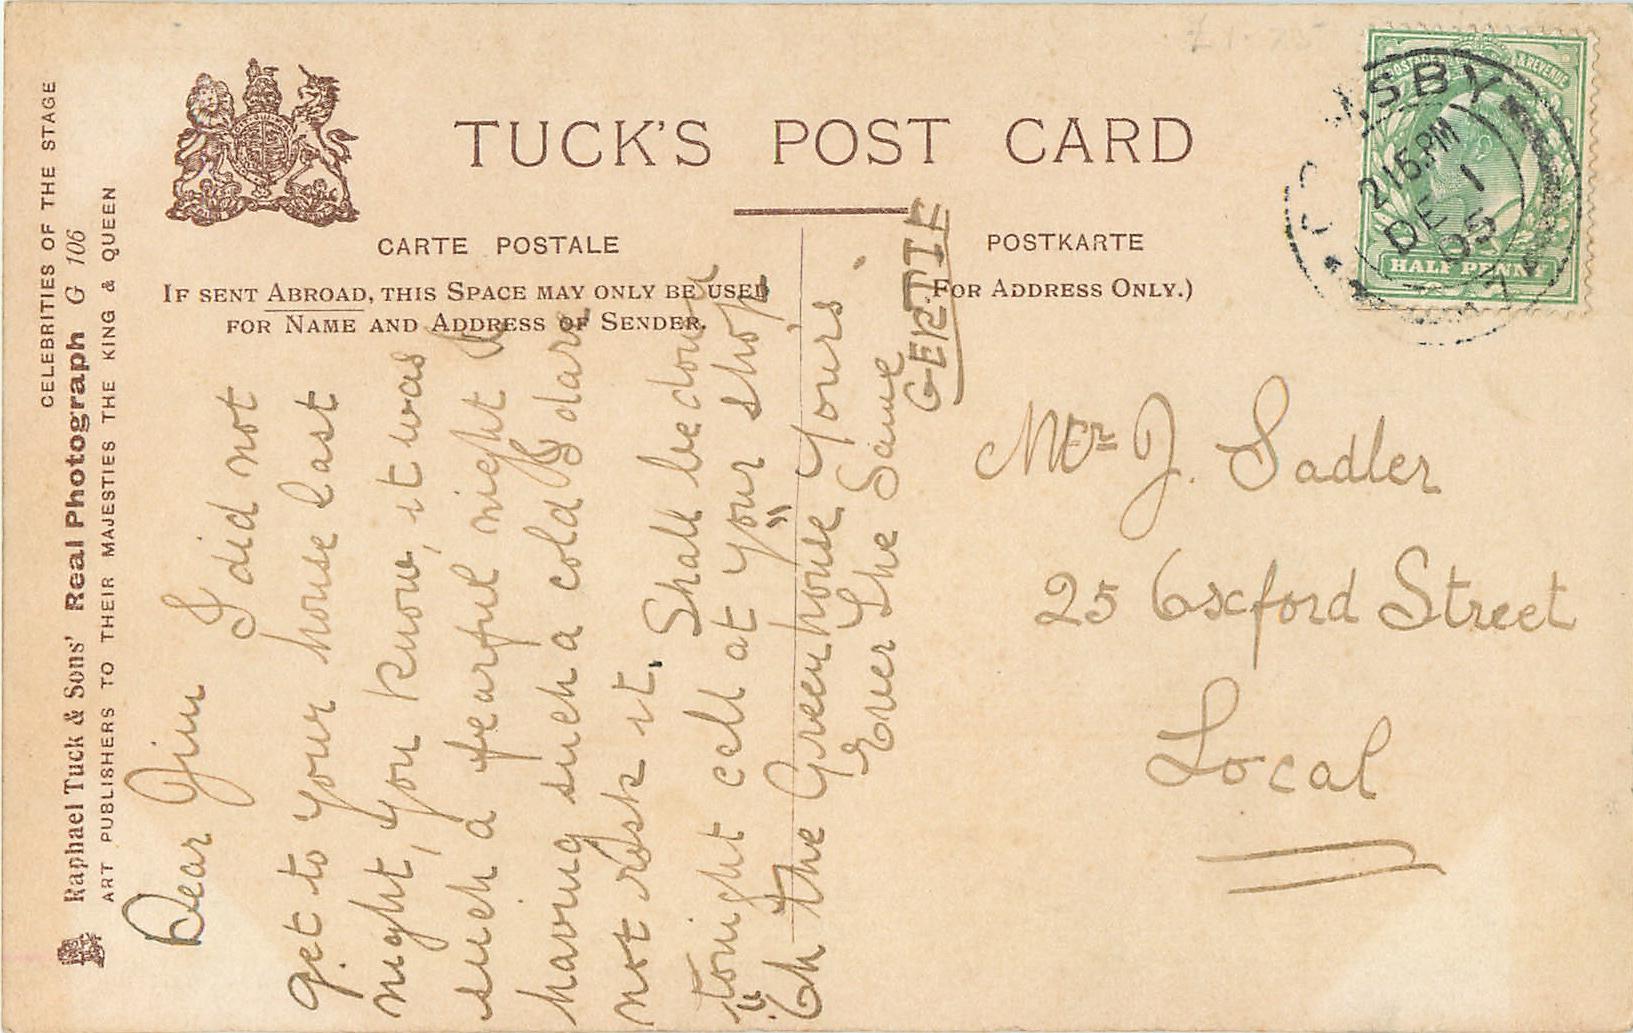 CELEBRITIES OF THE STAGE
Raphael Tuck & Sons' Real Photograph G 106
ART PUBLISHERS TO THEIR MAJESTIES THE KING & QUEEN
TUCK'S POST CARD
CARTE POSTALE
POSTKARTE
IF SENT ABROAD, THIS SPACE MAY ONLY BE USED
FOR NAME AND ADDRESS OF SENDER.
(FOR ADDRESS ONLY.)
POSTAGE & REVENUE
HALF PENNY
SBY
215.PM
DE 1
05
Dear Jim I did not
get to your house last
night, you know, it was
such a fearful night &
having such a cold I dare
not risk it. Shall be down
tonight at your shop
"Oh the Greenhouse" Yours
Ever The Same
GERTIE
Mr J. Sadler
25 Oxford Street
Local